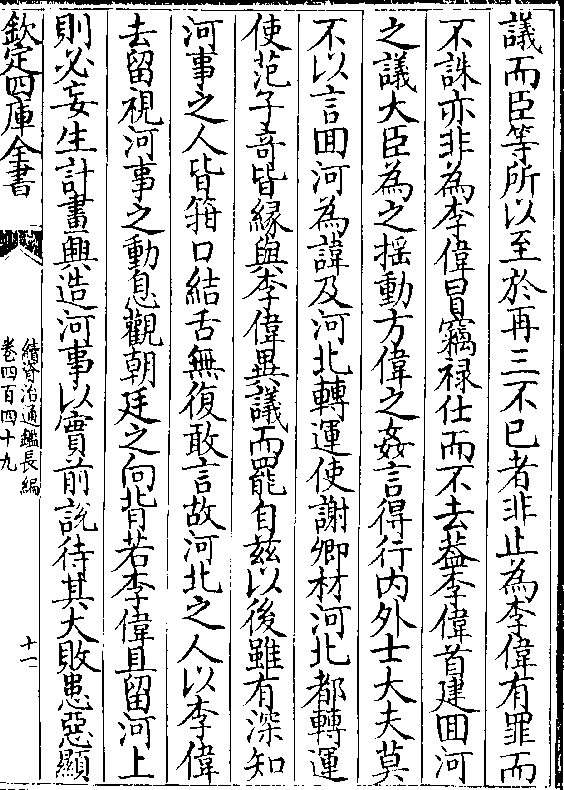 議而臣等所以至於再三不已者非止為李偉有罪而
不誅亦非為李偉冒竊禄仕而不去葢李偉首建囬河
之議大臣為之揺動方偉之姦言得行内外士大夫莫
不以言囬河為諱及河北轉運使謝卿材河北都轉運
使范子竒皆縁與李偉異議而罷自兹以後雖有深知
河事之人皆箝口結舌無復敢言故河北之人以李偉
去留視河事之動息觀朝廷之向背若李偉且留河上
則必妄生計畫興造河事以實前説待其大敗患惡顯
欽定四庫全書
續資治通鑑長編
卷四百四十九
十一